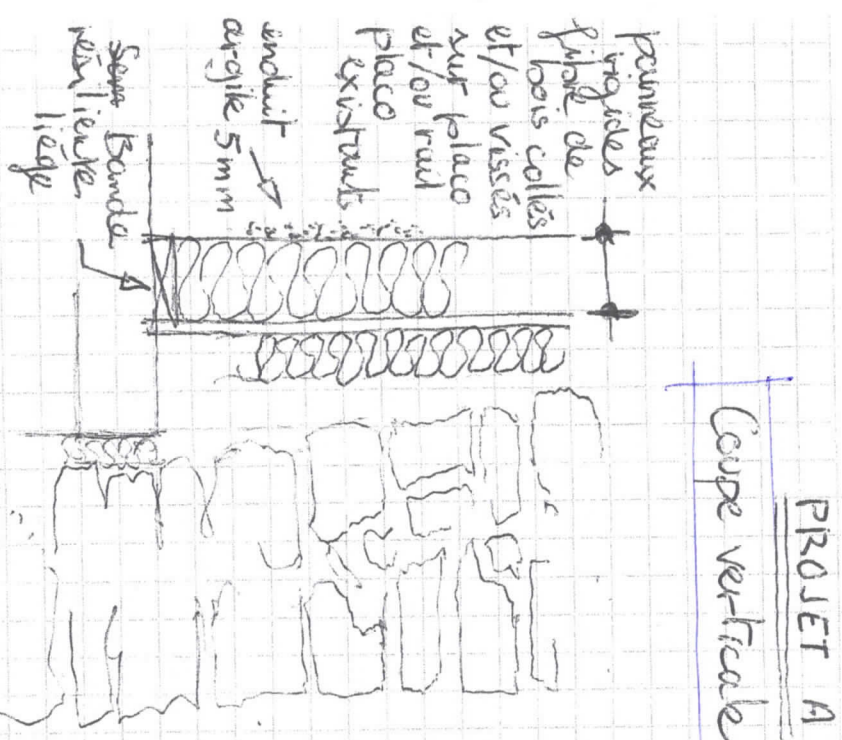 PROJET A
Coupe verticale
panneaux
rigides
fibre de
bois collés
et/ou vissés
sur placo
et/ou rail
placo
existant
enduit
argile 5mm
Bande
résiliente
liège